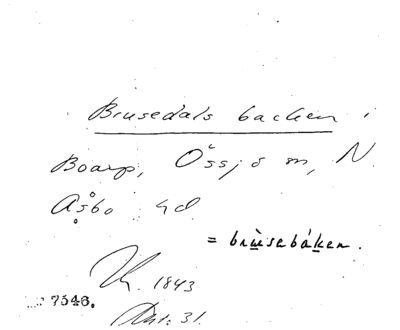 Brusedals backen i
Boarp, Össjö sn, N.
Åsbo hd
= brùsebáken.
1843
7546.
31.